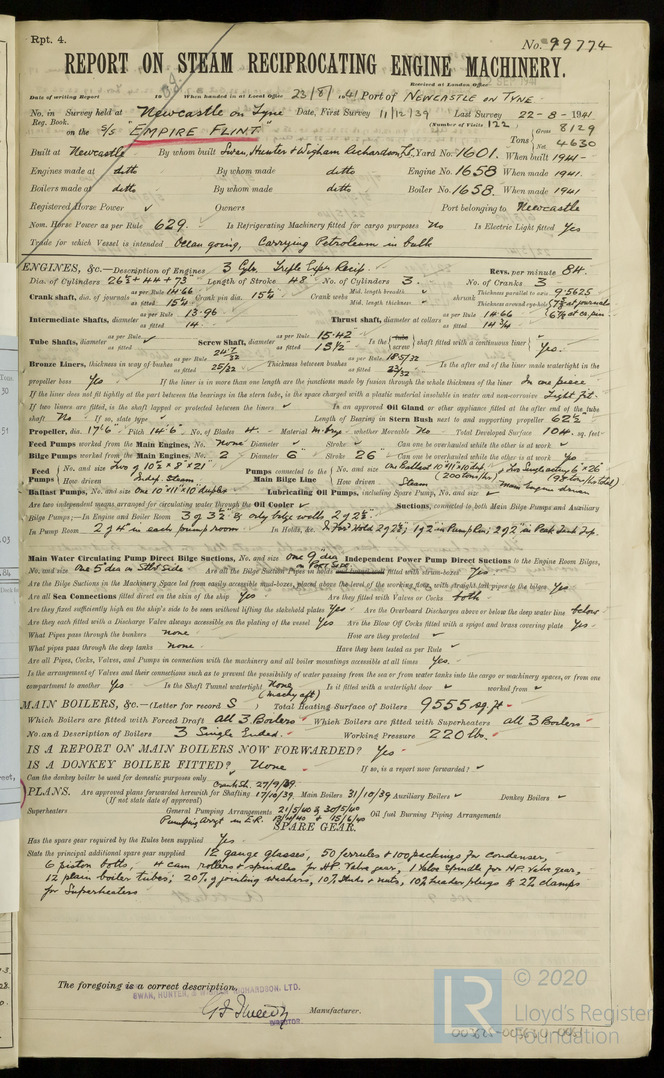 Rpt. 4.
No. 99774
REPORT ON STEAM RECIPROCATING ENGINE MACHINERY.
Received at London Office
Date of writing Report 19 When handed in at Local Office 23/8/1941 Port of NEWCASTLE ON TYNE
No. in Survey held at Newcastle on Tyne Date, First Survey 11/12/39 Last Survey 22-8-1941
Reg. Book. (Number of Visits 122)
on the S/S "EMPIRE FLINT" Tons Gross 8129 Net 4630
Built at Newcastle By whom built Swan, Hunter & Wigham Richardson, Ld, Yard No. 1601. When built 1941-
Engines made at ditto By whom made ditto Engine No. 1658 When made 1941.
Boilers made at ditto By whom made ditto Boiler No. 1658. When made 1941
Registered Horse Power Owners Port belonging to Newcastle
Nom. Horse Power as per Rule 629. Is Refrigerating Machinery fitted for cargo purposes No Is Electric Light fitted Yes
Trade for which Vessel is intended Ocean going, Carrying Petroleum in bulk
ENGINES, &c.—Description of Engines 3 Cylr. Triple Expn Recip. Revs. per minute 84.
Dia. of Cylinders 26½ + 44 + 73 Length of Stroke 48" No. of Cylinders 3. No. of Cranks 3
Crank shaft, dia. of journals as per Rule 14.66 as fitted 15¼ Crank pin dia. 15¼ Crank webs Mid. length breadth Mid. length thickness shrunk Thickness parallel to axis 9.5625 Thickness around eye-hole 7⅜ at journals
Intermediate Shafts, diameter as per Rule 13.96 as fitted 14. Thrust shaft, diameter at collars as per Rule 14.66 as fitted 14¾
Tube Shafts, diameter as per Rule as fitted Screw Shaft, diameter as per Rule 15.42 as fitted 15½ Is the tube screw shaft fitted with a continuous liner Yes.
Bronze Liners, thickness in way of bushes as per Rule as fitted 25/32 Thickness between bushes as per Rule as fitted 23/32 Is the after end of the liner made watertight in the
propeller boss Yes If the liner is in more than one length are the junctions made by fusion through the whole thickness of the liner In one piece
If the liner does not fit tightly at the part between the bearings in the stern tube, is the space charged with a plastic material insoluble in water and non-corrosive Tight fit.
If two liners are fitted, is the shaft lapped or protected between the liners Is an approved Oil Gland or other appliance fitted at the after end of the tube
shaft No If so, state type Length of Bearing in Stern Bush next to and supporting propeller 62½"
Propeller, dia. 17'6" Pitch 14'6" No. of Blades 4. Material M. Bze. whether Moveable No Total Developed Surface 104. sq. feet
Feed Pumps worked from the Main Engines, No. None Diameter Stroke Can one be overhauled while the other is at work
Bilge Pumps worked from the Main Engines, No. 2 Diameter 6" Stroke 26" Can one be overhauled while the other is at work Yes
Feed Pumps No. and size Two of 10½ x 8" x 21" How driven Indep. Steam Pumps connected to the Main Bilge Line No. and size One Ballast 10"x11"x10" dup. (200 tons/hr), Two Single acting 6" x 26" How driven Steam Main Engine driven
Ballast Pumps, No. and size One 10"x11"x10" duplex Lubricating Oil Pumps, including Spare Pump, No. and size
Are two independent means arranged for circulating water through the Oil Cooler Suctions, connected to both Main Bilge Pumps and Auxiliary
Bilge Pumps;—In Engine and Boiler Room 3 of 3½" & oily bilge wells 2 of 2½".
In Pump Room 2 of 4" in each pump room In Holds, &c. In For'd Hold 2 of 2½"; 1 of 2" in Pump Rm; 2 of 2" in Peak Tank Top.
Main Water Circulating Pump Direct Bilge Suctions, No. and size One 9" dia. on Port Side Independent Power Pump Direct Suctions to the Engine Room Bilges,
No. and size One 5" dia on Stbd Side Are all the Bilge Suction Pipes in holds fitted with strum-boxes Yes
Are the Bilge Suctions in the Machinery Space led from easily accessible mud-boxes, placed above the level of the working floor, with straight tail pipes to the bilges Yes
Are all Sea Connections fitted direct on the skin of the ship Yes Are they fitted with Valves or Cocks both.
Are they fixed sufficiently high on the ship's side to be seen without lifting the stokehold plates Yes Are the Overboard Discharges above or below the deep water line below
Are they each fitted with a Discharge Valve always accessible on the plating of the vessel Yes Are the Blow Off Cocks fitted with a spigot and brass covering plate Yes
What Pipes pass through the bunkers none How are they protected
What pipes pass through the deep tanks none. Have they been tested as per Rule
Are all Pipes, Cocks, Valves, and Pumps in connection with the machinery and all boiler mountings accessible at all times Yes.
Is the arrangement of Valves and their connections such as to prevent the possibility of water passing from the sea or from water tanks into the cargo or machinery spaces, or from one
compartment to another Yes Is the Shaft Tunnel watertight None (Machy aft) Is it fitted with a watertight door worked from
MAIN BOILERS, &c.—(Letter for record S) Total Heating Surface of Boilers 9555 sq. ft
Which Boilers are fitted with Forced Draft all 3 Boilers Which Boilers are fitted with Superheaters all 3 Boilers
No. and Description of Boilers 3 Single Ended. Working Pressure 220 lbs.
IS A REPORT ON MAIN BOILERS NOW FORWARDED? Yes
IS A DONKEY BOILER FITTED? None If so, is a report now forwarded?
Can the donkey boiler be used for domestic purposes only
PLANS. Are approved plans forwarded herewith for Shafting Crank Sh. 27/9/39 17/10/39 Main Boilers 31/10/39 Auxiliary Boilers Donkey Boilers
(If not state date of approval)
Superheaters General Pumping Arrangements 21/5/40 & 30/5/40 Oil fuel Burning Piping Arrangements
Pumping Arrgt in E.R. 15/6/40
SPARE GEAR.
Has the spare gear required by the Rules been supplied Yes
State the principal additional spare gear supplied 12 gauge glasses, 50 ferrules + 100 packings for condenser,
6 piston bolts, 4 cam rollers & spindles for H.P. Valve gear, 1 Valve Spindle for H.P. Valve gear,
12 plain boiler tubes; 20% of jointing washers, 10% studs & nuts, 10% header plugs & 2% clamps
for Superheaters
The foregoing is a correct description,
SWAN, HUNTER, & WIGHAM RICHARDSON, LTD.
G F Tweedy Manufacturer.
DIRECTOR.
LR © 2020
Lloyd's Register
Foundation